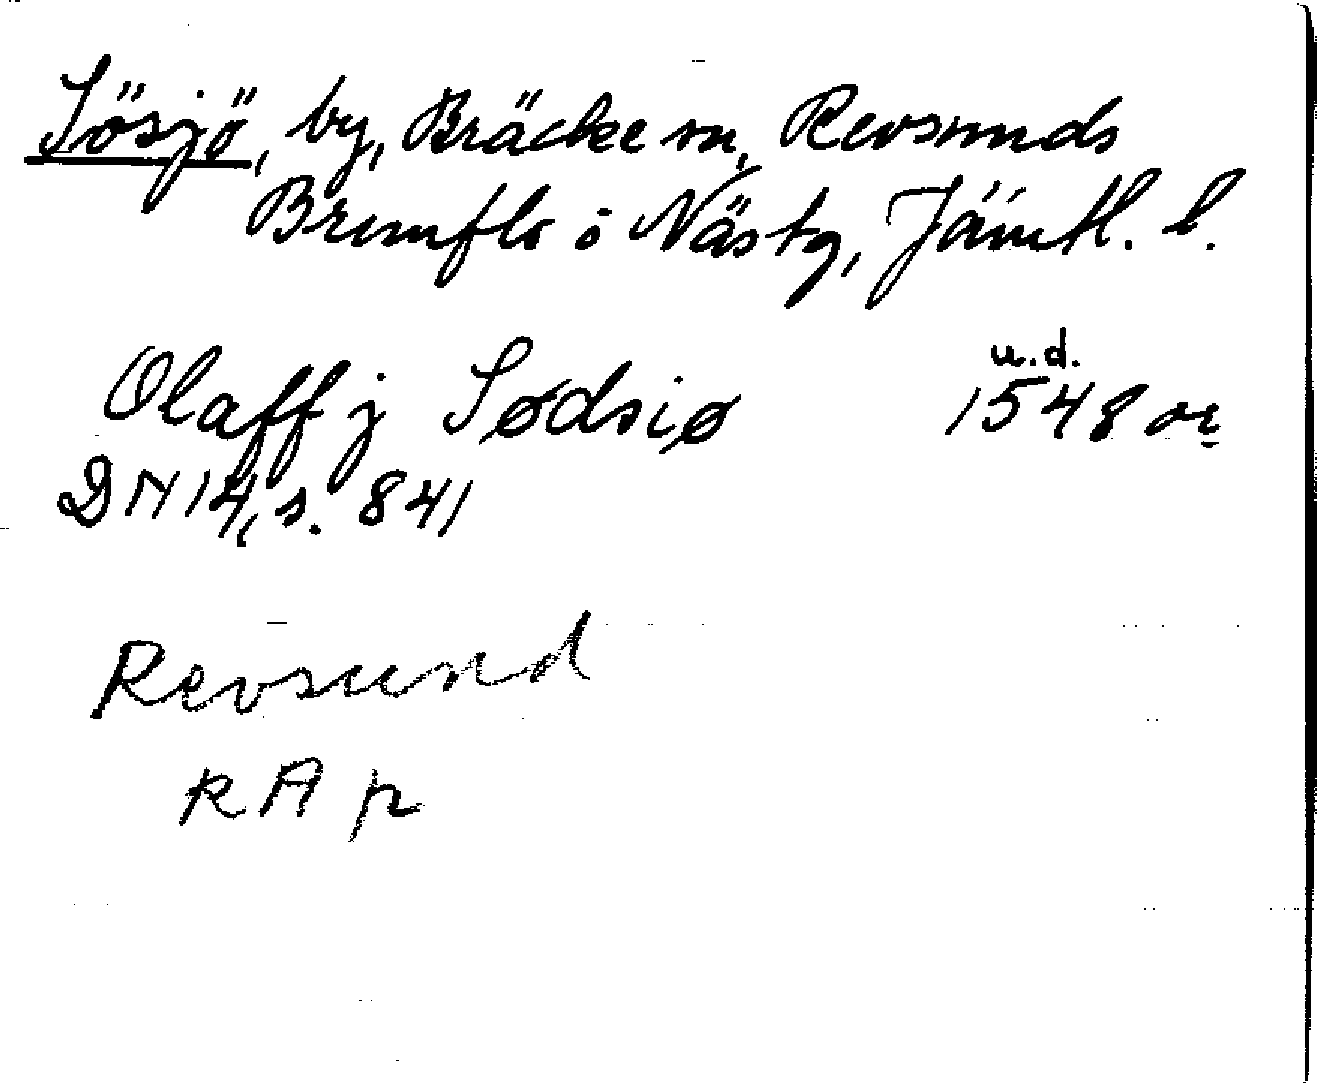 Sösjö, by, Bräcke sn, Revsunds
Brunflo o Näs tg, Jämtl. l.
Olaff j Sødsiø u.d. 1548 or
DN 14, s. 841
Revsund
RA p